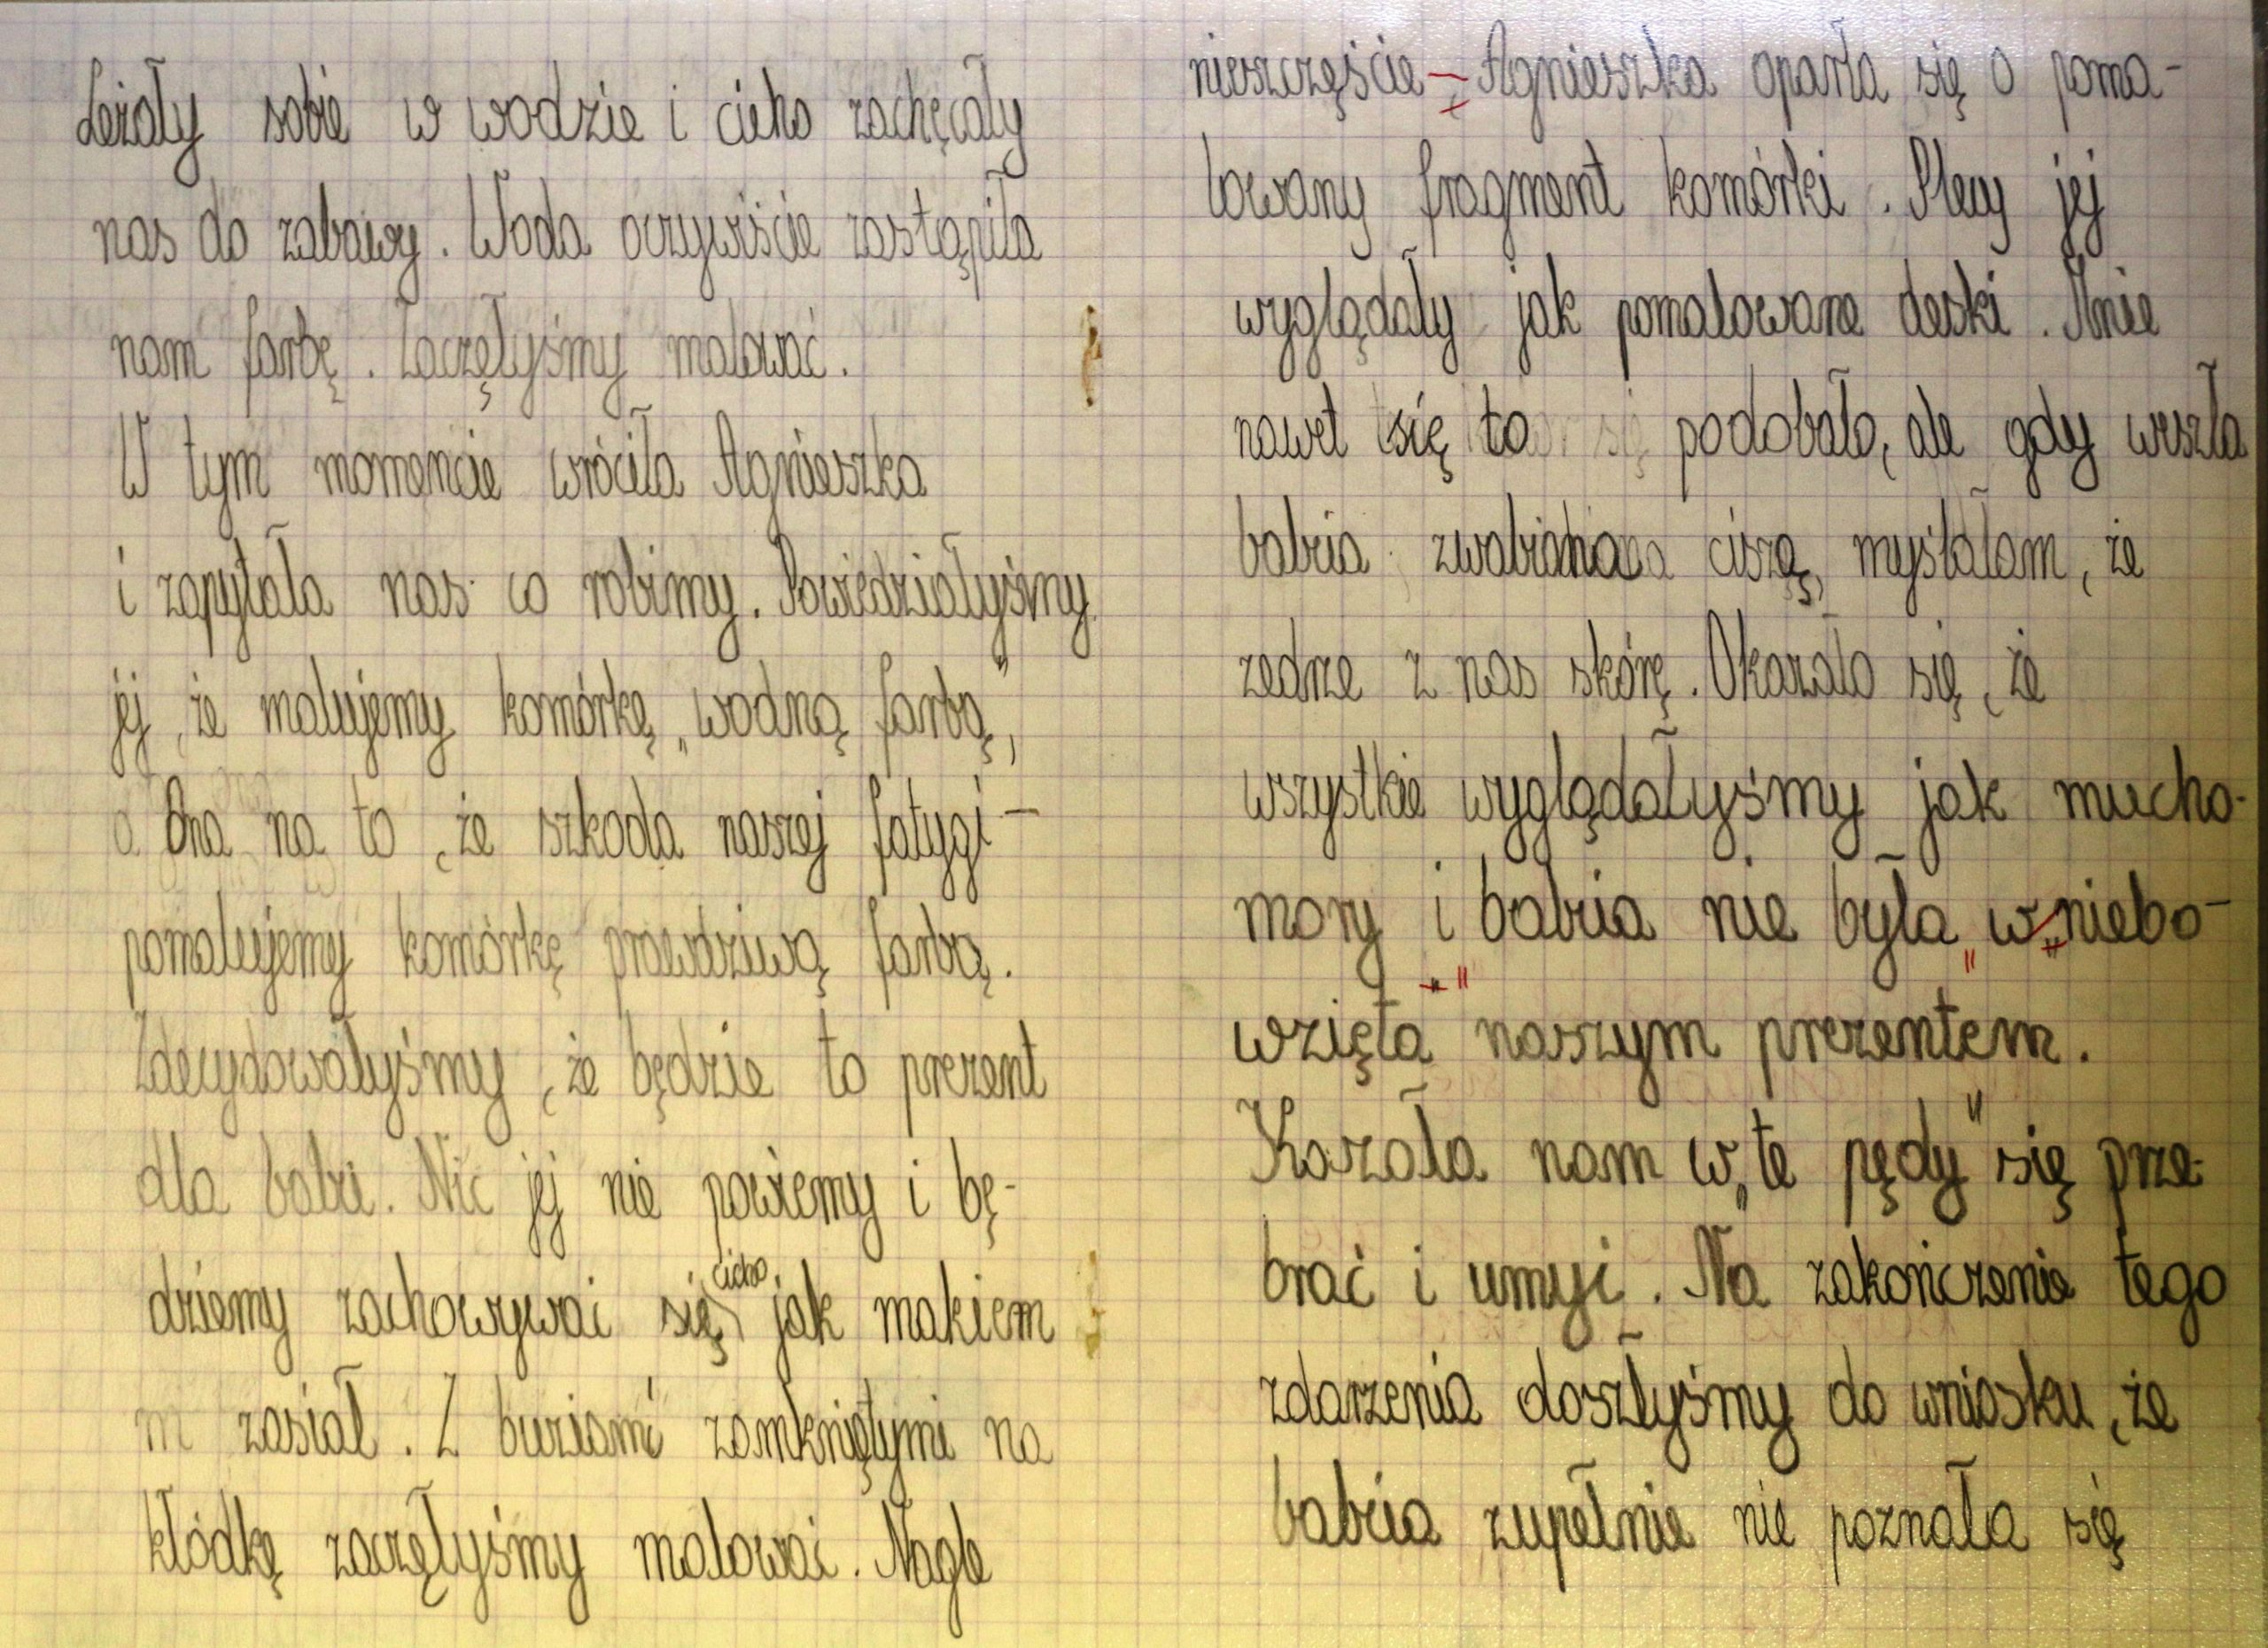 Leżały sobie w wodzie i cicho zachęcały
nas do zabawy. Woda oczywiście zastąpiła
nam farbę. Zaczęłyśmy malować.
W tym momencie wróciła Agnieszka
i zapytała nas co robimy. Powiedziałyśmy
jej, że malujemy komórkę „wodną farbą”,
Ona na to, że szkoda naszej fatygi –
pomalujemy komórkę prawdziwą farbą.
Zdecydowałyśmy, że będzie to prezent
dla babci. Nic jej nie powiemy i bę-
dziemy zachowywać się cicho jak makiem
zasiał. Z buziami zamkniętymi na
kłódkę zaczęłyśmy malować. Nagle
nieszczęście – Agnieszka oparła się o poma-
lowany fragment komórki. Plecy jej
wyglądały jak pomalowane deski. Mnie
nawet się to podobało, ale gdy weszła
babcia zwabiona ciszą, myślałam, że
zedrze z nas skórę. Okazało się, że
wszystkie wyglądałyśmy jak mucho-
mory i babcia nie była „w niebo-
wzięta” naszym prezentem.
Kazała nam w „te pędy” się prze-
brać i umyć. Na zakończenie tego
zdarzenia doszłyśmy do wniosku, że
babcia zupełnie nie poznała się